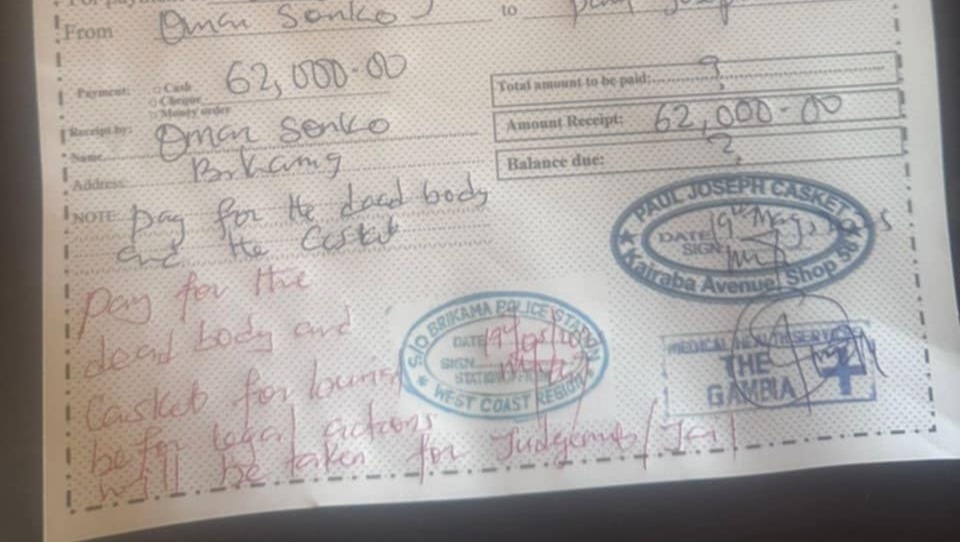 From Oman Sonko to
Payment: Cash 62,000-00
Cheque
Money order
Total amount to be paid: ?
Receipt by: Oman Sonko
Amount Receipt: 62,000-00
Name
Balance due: ?
Address: Brikama
NOTE: Pay for the dead body
and the Casket
PAUL JOSEPH CASKET
DATE 19th May
SIGN
Kairaba Avenue, Shop 56
Pay for the
dead body and
Casket for
before legal actions
will be taken for Judgement/Jail
S/O BRIKAMA POLICE STATION
DATE 19
SIGN
WEST COAST REGION
MEDICAL HEALTH SERVICE
THE
GAMBIA